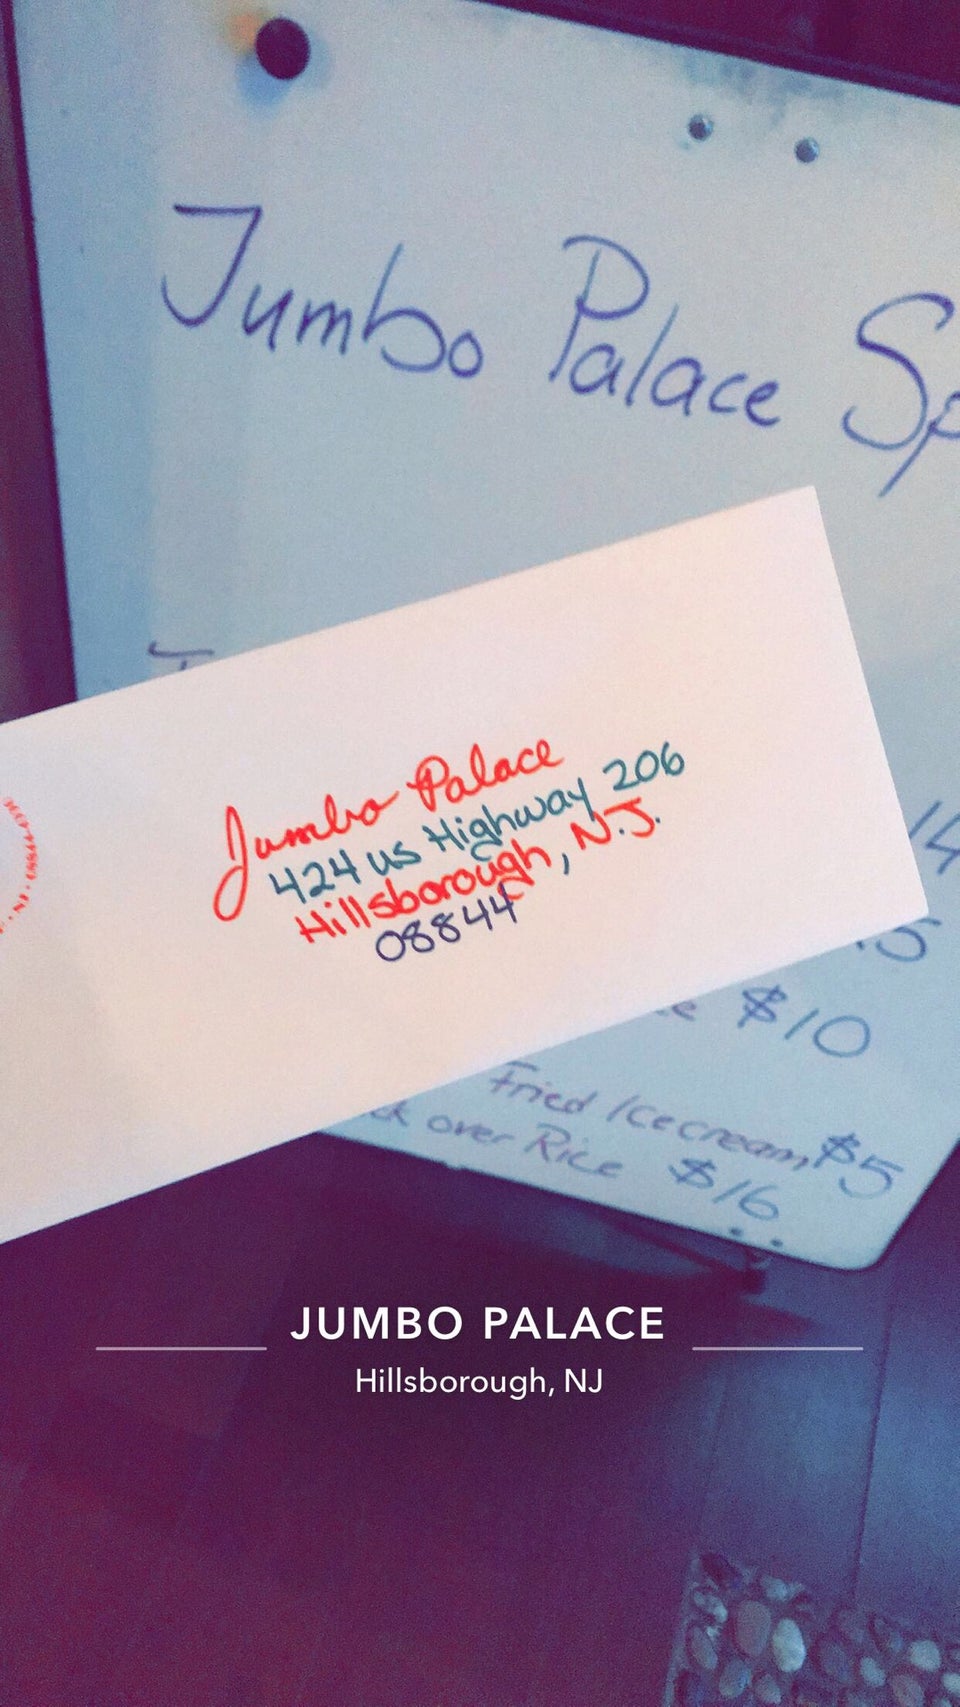 Jumbo Palace Sp
Jumbo Palace
424 us Highway 206
Hillsborough, N.J.
08844
14
.5
$10
Fried Icecream $5
over Rice $16
JUMBO PALACE
Hillsborough, NJ